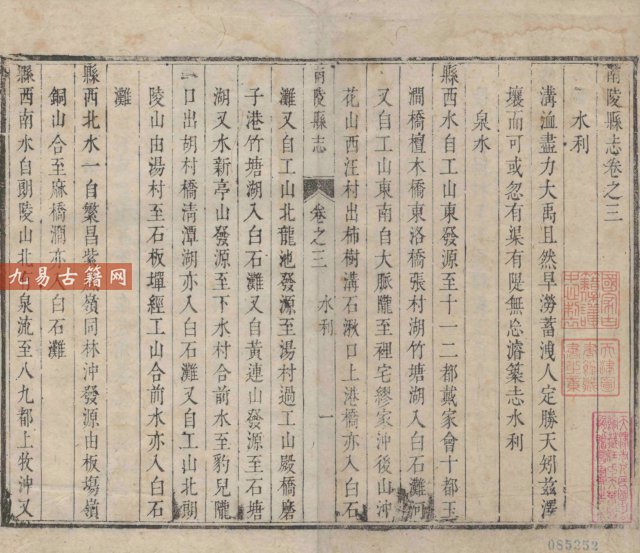 南陵縣志卷之三
水利
溝洫盡力大禹且然旱澇蓄洩人定勝天矧茲澤
壤而可或忽有渠有隄無忘濬築志水利
泉水
縣西水自工山東發源至十一二都戴家會十都玉
澗橋檀木橋東洛橋張村湖竹塘湖入白石灘河
又自工山東南自大脈隴至裡宅繆家沖後山沖
花山西汪村出柿樹溝石湫口上港橋亦入白石
南陵縣志
卷之三
水利
一
灘又自工山北龍池發源至湯村過工山殿橋磨
子港竹塘湖入白石灘又自黃連山發源至石塘
湖又水新亭山發源至下水村合前水至豹兒隴
口出胡村橋清潭湖亦入白石灘又自工山北朗
陵山由湯村至石板墠經工山合前水亦入白石
灘
縣西北水一自繁昌紫嶺同林沖發源由板塲嶺
銅山合至麻橋澗亦白石灘
縣西南水自朗陵山北泉流至八九都上牧沖又
九易古籍网
085252